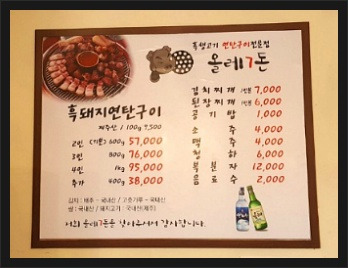 흑명고기 연탄구이전문점
올레7돈
흑돼지연탄구이
제주산 / 100g 9,500
2인 (기본) 600g 57,000
3인 800g 76,000
4인 1kg 95,000
추가 400g 38,000
김치찌개 7,000
된장찌개 6,000
공기밥 1,000
소주 4,000
맥주 4,000
청하 6,000
복분자 12,000
음료수 2,000
김치 : 배추 - 국내산 / 고춧가루 - 국내산
쌀 : 국내산 / 돼지고기 : 국내산(제주)
저희 올레7돈을 찾아주셔서 감사합니다.